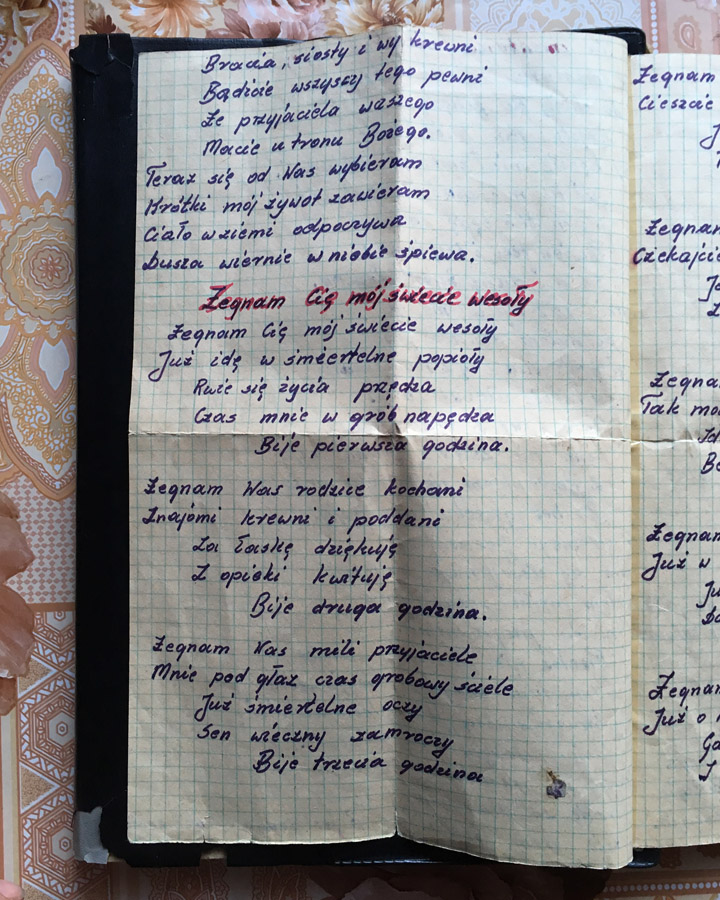 Bracia, siosty i wy krewni
Bądicie wszyscy tego pewni
Że przyjaciela waszego
Macie u tronu Bożego.
Teraz się od Was wybieram
Krótki mój żywot zawieram
Ciało w ziemi odpoczywa
Dusza wiernie w niebie śpiewa.
Żegnam Cię mój świecie wesoły
Żegnam Cię mój świecie wesoły
Już idę w śmiertelne popioły
Rwie się życia przędza
Czas mnie w grób napędza
Bije pierwsza godzina.
Żegnam Was rodzice kochani
Znajomi krewni i poddani
Za łaskę dziękuję
Z opieki kwituję
Bije druga godzina.
Żegnam Was mili przyjaciele
Mnie pod głaz czas grobowy ściele
Już śmiertelne oczy
Sen wieczny zamroczy
Bije trzecia godzina
Żegnam
Cieszcie
Żegnam
Czekajcie
Żegna
Tak mo
Be
Żegnam
Już w
Żegnam
Już o